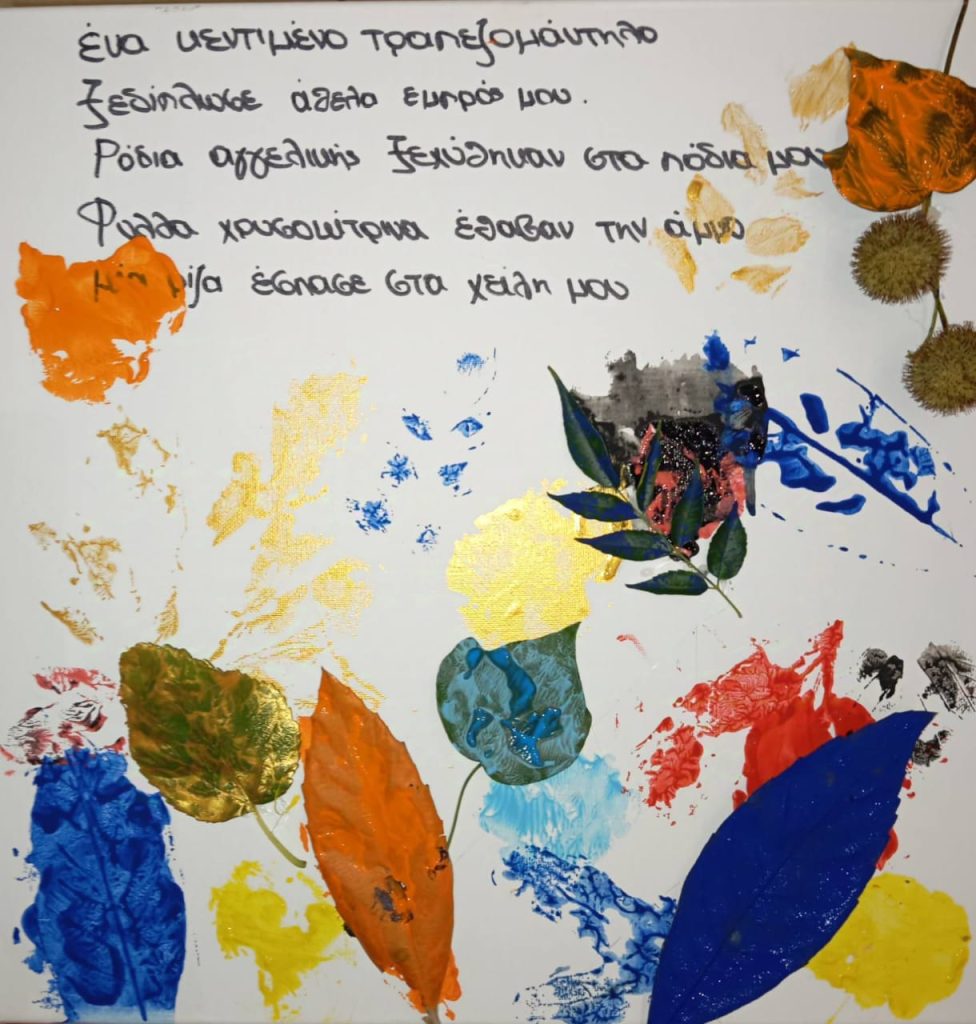 ένα κεντιμένο τραπεζομάντηλο
Ξεδίπλωσε άθελα εμπρός μου.
Ρόδια αγγελικής ξεχύθηκαν στα πόδια μου
Φύλλα χρυσοκίτρινα έθαβαν την άμμο
μία ρίζα έσπασε στα χείλη μου